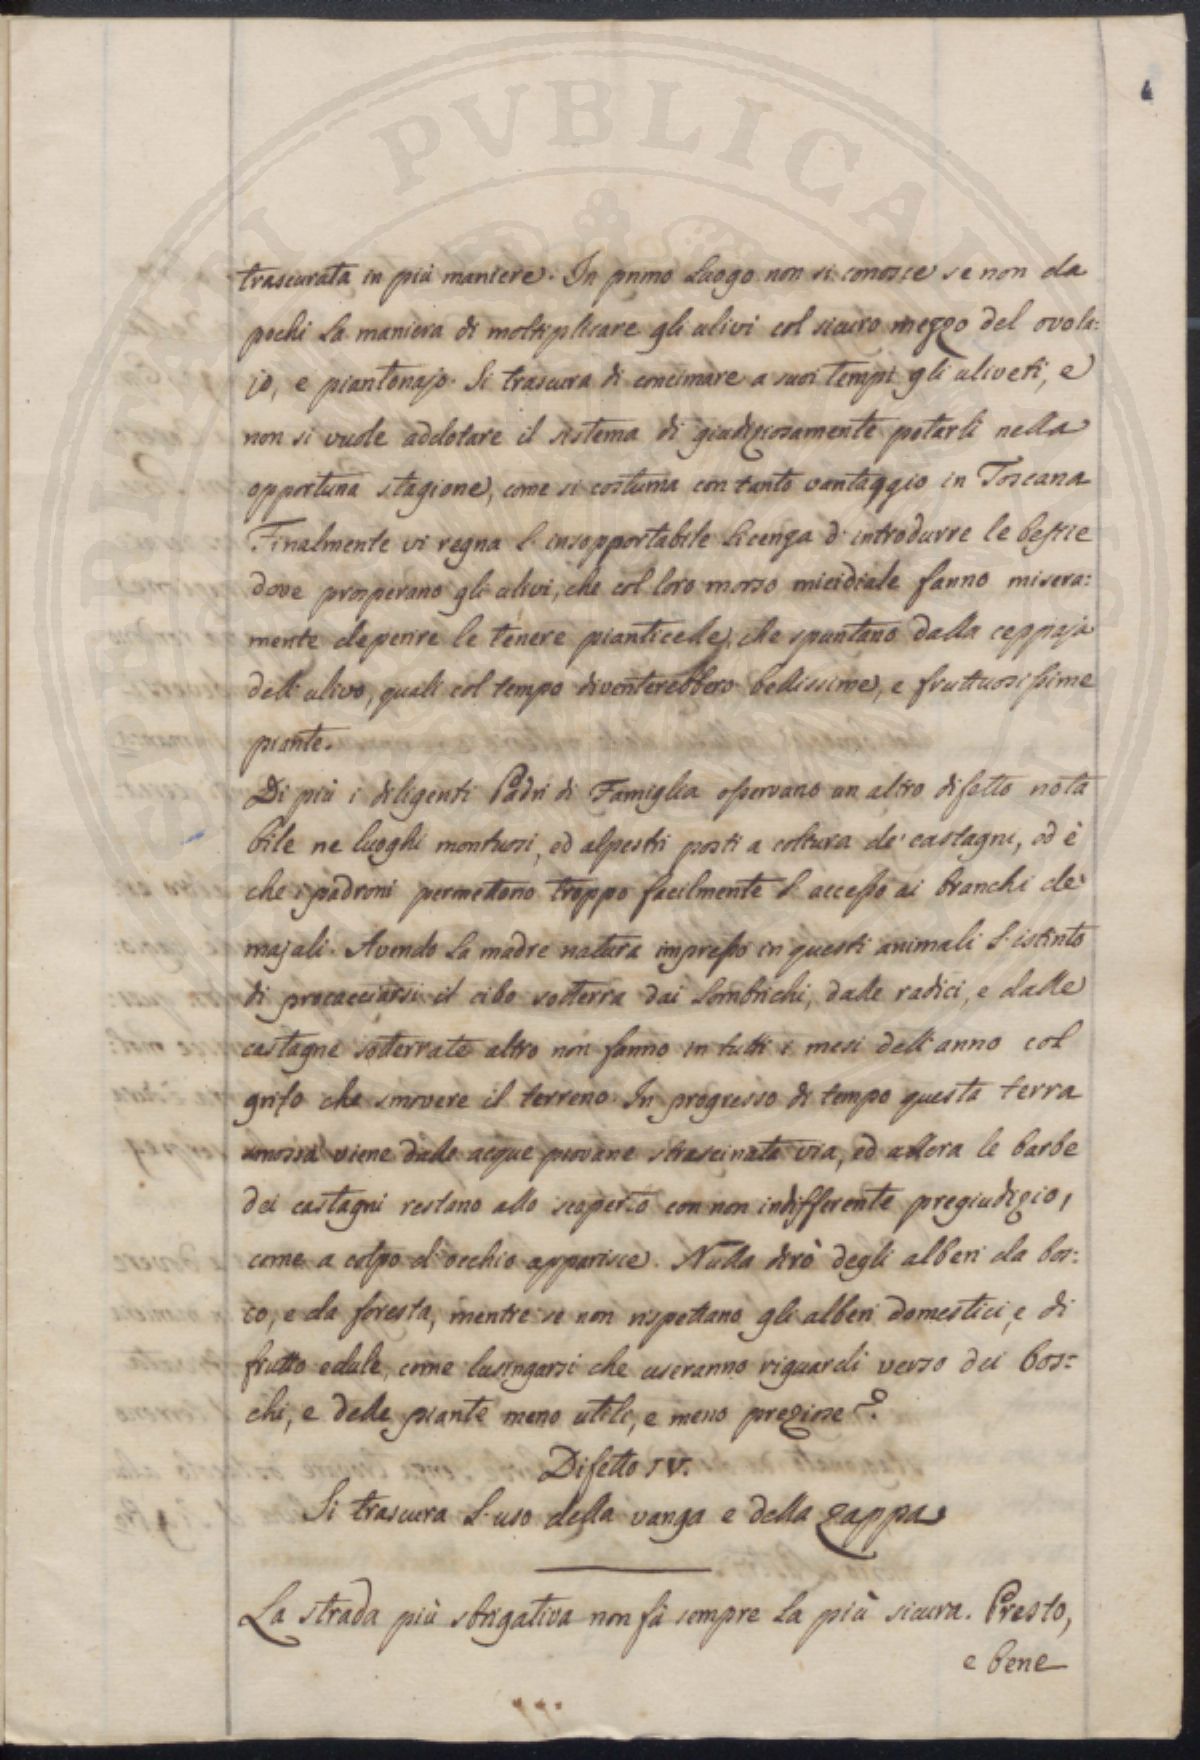 PVBLICAE
4
trascurata in più maniere. In primo Luogo non si conosce se non da
pochi La maniera di moltiplicare gli ulivi col sicuro mezzo del ovola:
jo, e piantonajo. Si trascura di concimare a suoi tempi gli uliveti, e
non si vuole addotare il sistema di giudiziosamente potarli nella
opportuna stagione, come si costuma con tanto vantaggio in Toscana
Finalmente vi regna L'insopportabile Licenza d'introdurre le bestie
dove prosperano gli ulivi, che col loro morso micidiale fanno misera:
mente deperire le tenere pianticelle, che spuntano dalla ceppaja
dell'ulivo, quali col tempo diventerebbero bellissime, e fruttuosissime
piante.
Di più i diligenti Padri di Famiglia osservano un altro difetto nota
bile ne luoghi montuosi, ed alpestri posti a coltura de' castagni, ed è
che i padroni permettono troppo facilmente L'accesso ai branchi de'
majali. Avendo La madre natura impresso in questi animali L'istinto
di procacciarsi il cibo sotterra dai Lombrichi, dalle radici, e dalle
castagne sotterrate altro non fanno in tutti i mesi dell'anno col
grifo che smovere il terreno. In progresso di tempo questa terra
smossa viene dalle acque piovane strascinata via, ed allora le barbe
dei castagni restano allo scoperto con non indifferente pregiudizio,
come a colpo d'occhio apparisce. Nulla dirò degli alberi da bos:
co, e da foresta, mentre se non rispettano gli alberi domestici, e di
frutto edule, come lusingarsi che useranno riguardi verso dei bos:
chi, e delle piante meno utili, e meno preziose?
Difetto IV.
Si trascura L'uso della vanga e della zappa
La strada più sbrigativa non fù sempre La più sicura. Presto,
e bene